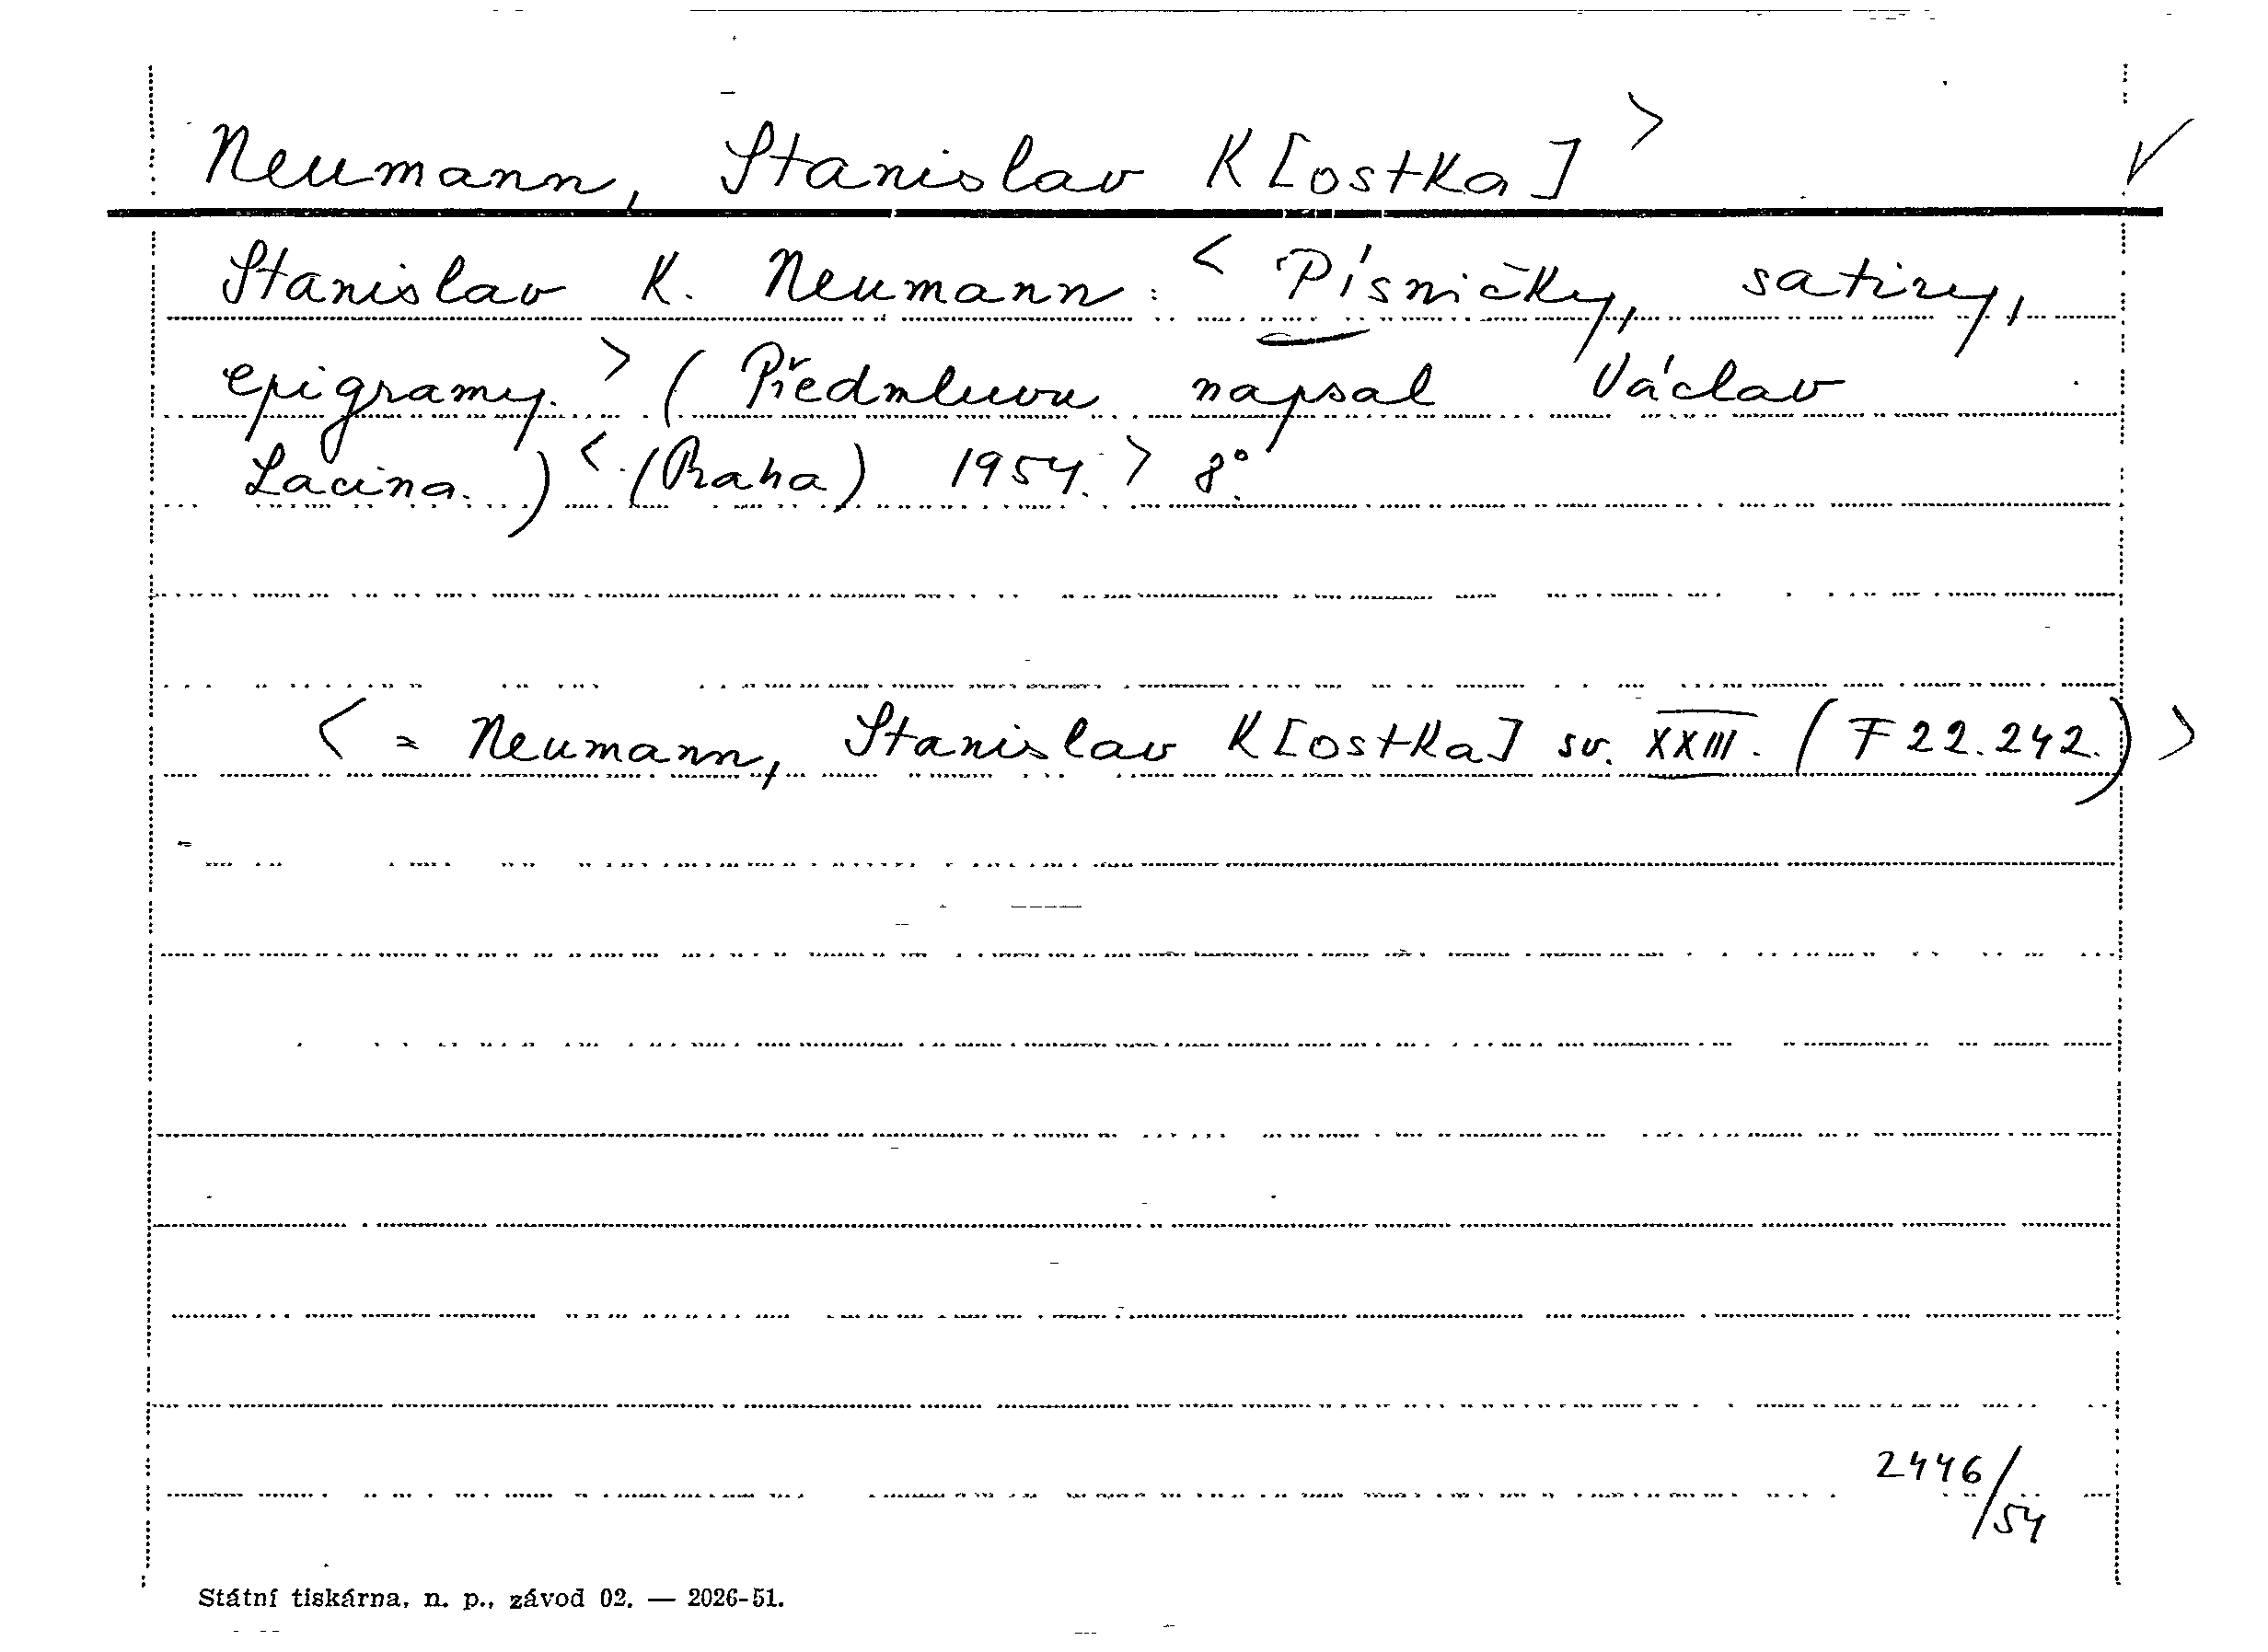 Neumann, Stanislav K[ostka] > ✓
Stanislav K. Neumann: < Písničky, satiry,
epigramy. > (Předmluvu napsal Václav
Lacina.) < (Praha) 1954. > 8°.
< = Neumann, Stanislav K[ostka] sv. XXIII. (F 22.242.) >
2446/54
Státní tiskárna, n. p., závod 02. — 2026-51.